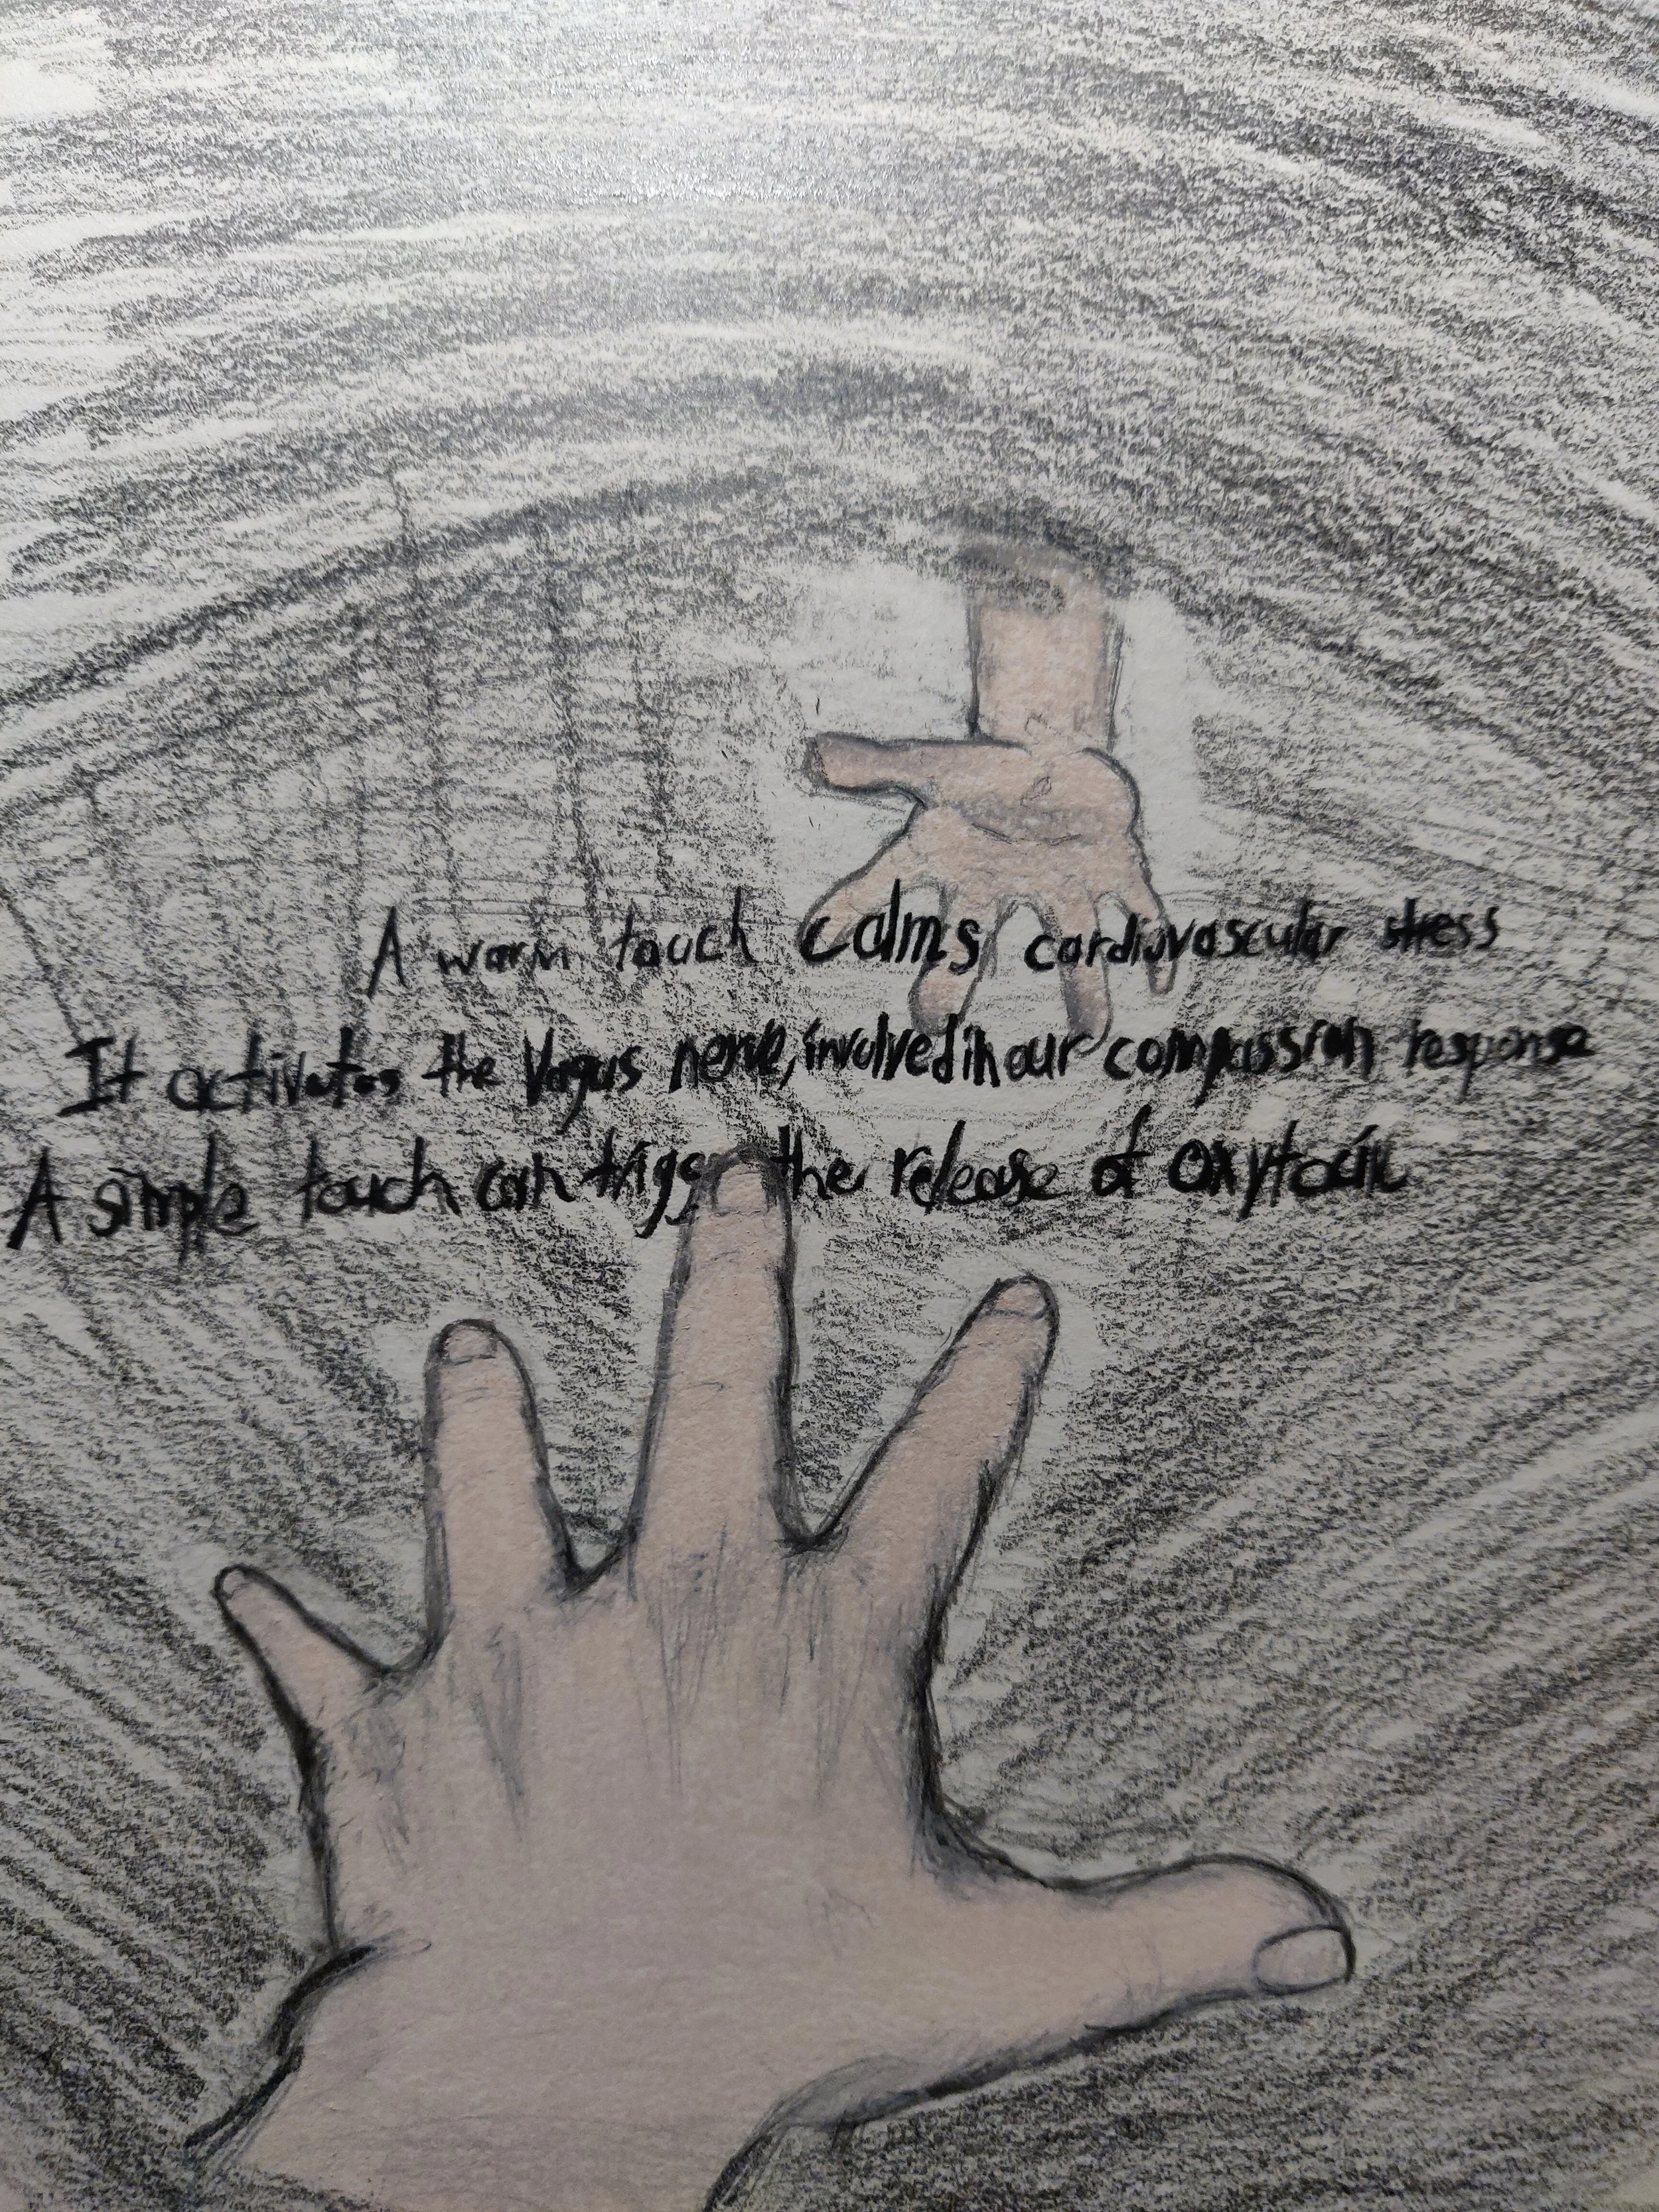 A warm touch calms cardiovascular stress
It activates the Vagus nerve, involved in our compassion response
A simple touch can trigge the release of oxytocin